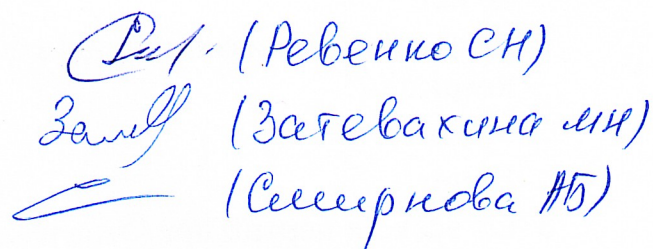 (Ревенко СН)
(Затевахина МН)
(Смирнова АБ)